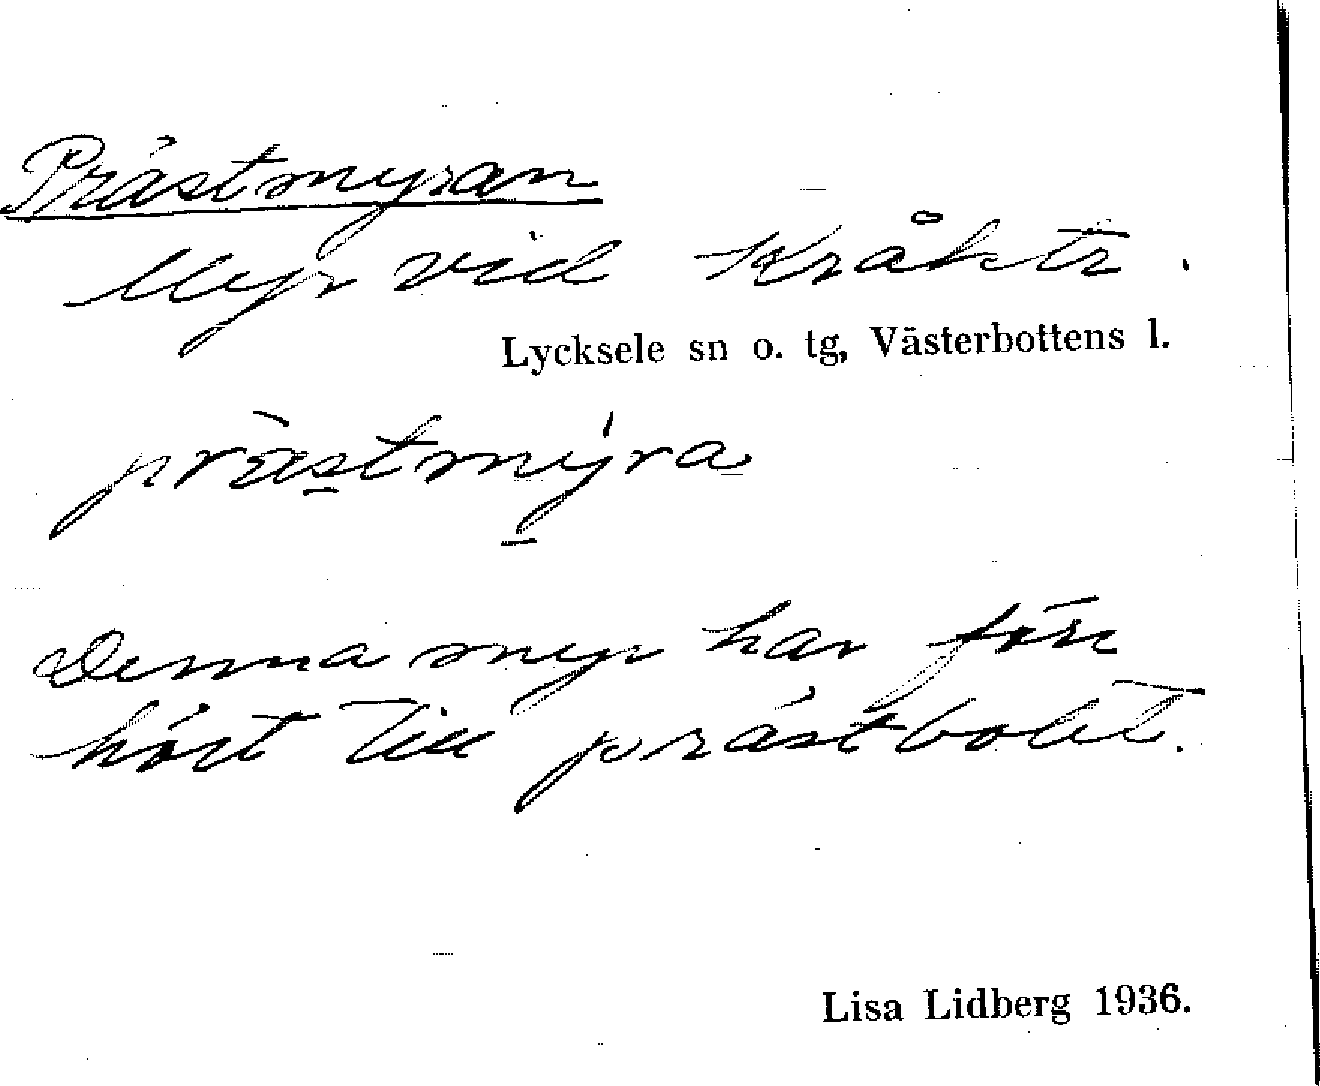 Prästmyran
Myr vid Kråktr.
Lycksele sn o. tg, Västerbottens l.
prästmýra
Denna myr har förr
hört till prästbolet.
Lisa Lidberg 1936.